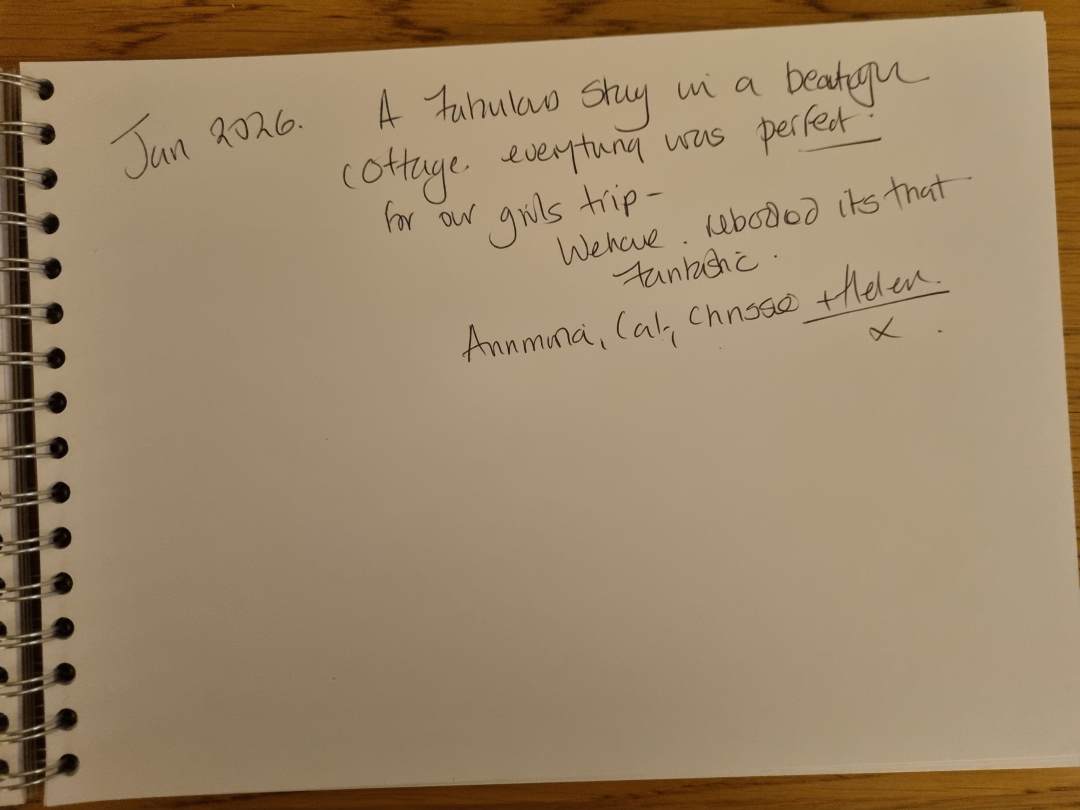 Jan 2026. A fabulous stay in a beautiful
cottage. everything was perfect.
for our girls trip -
We have. rebooked its that
fantastic.
Cat, Chrissie + Helen.
x